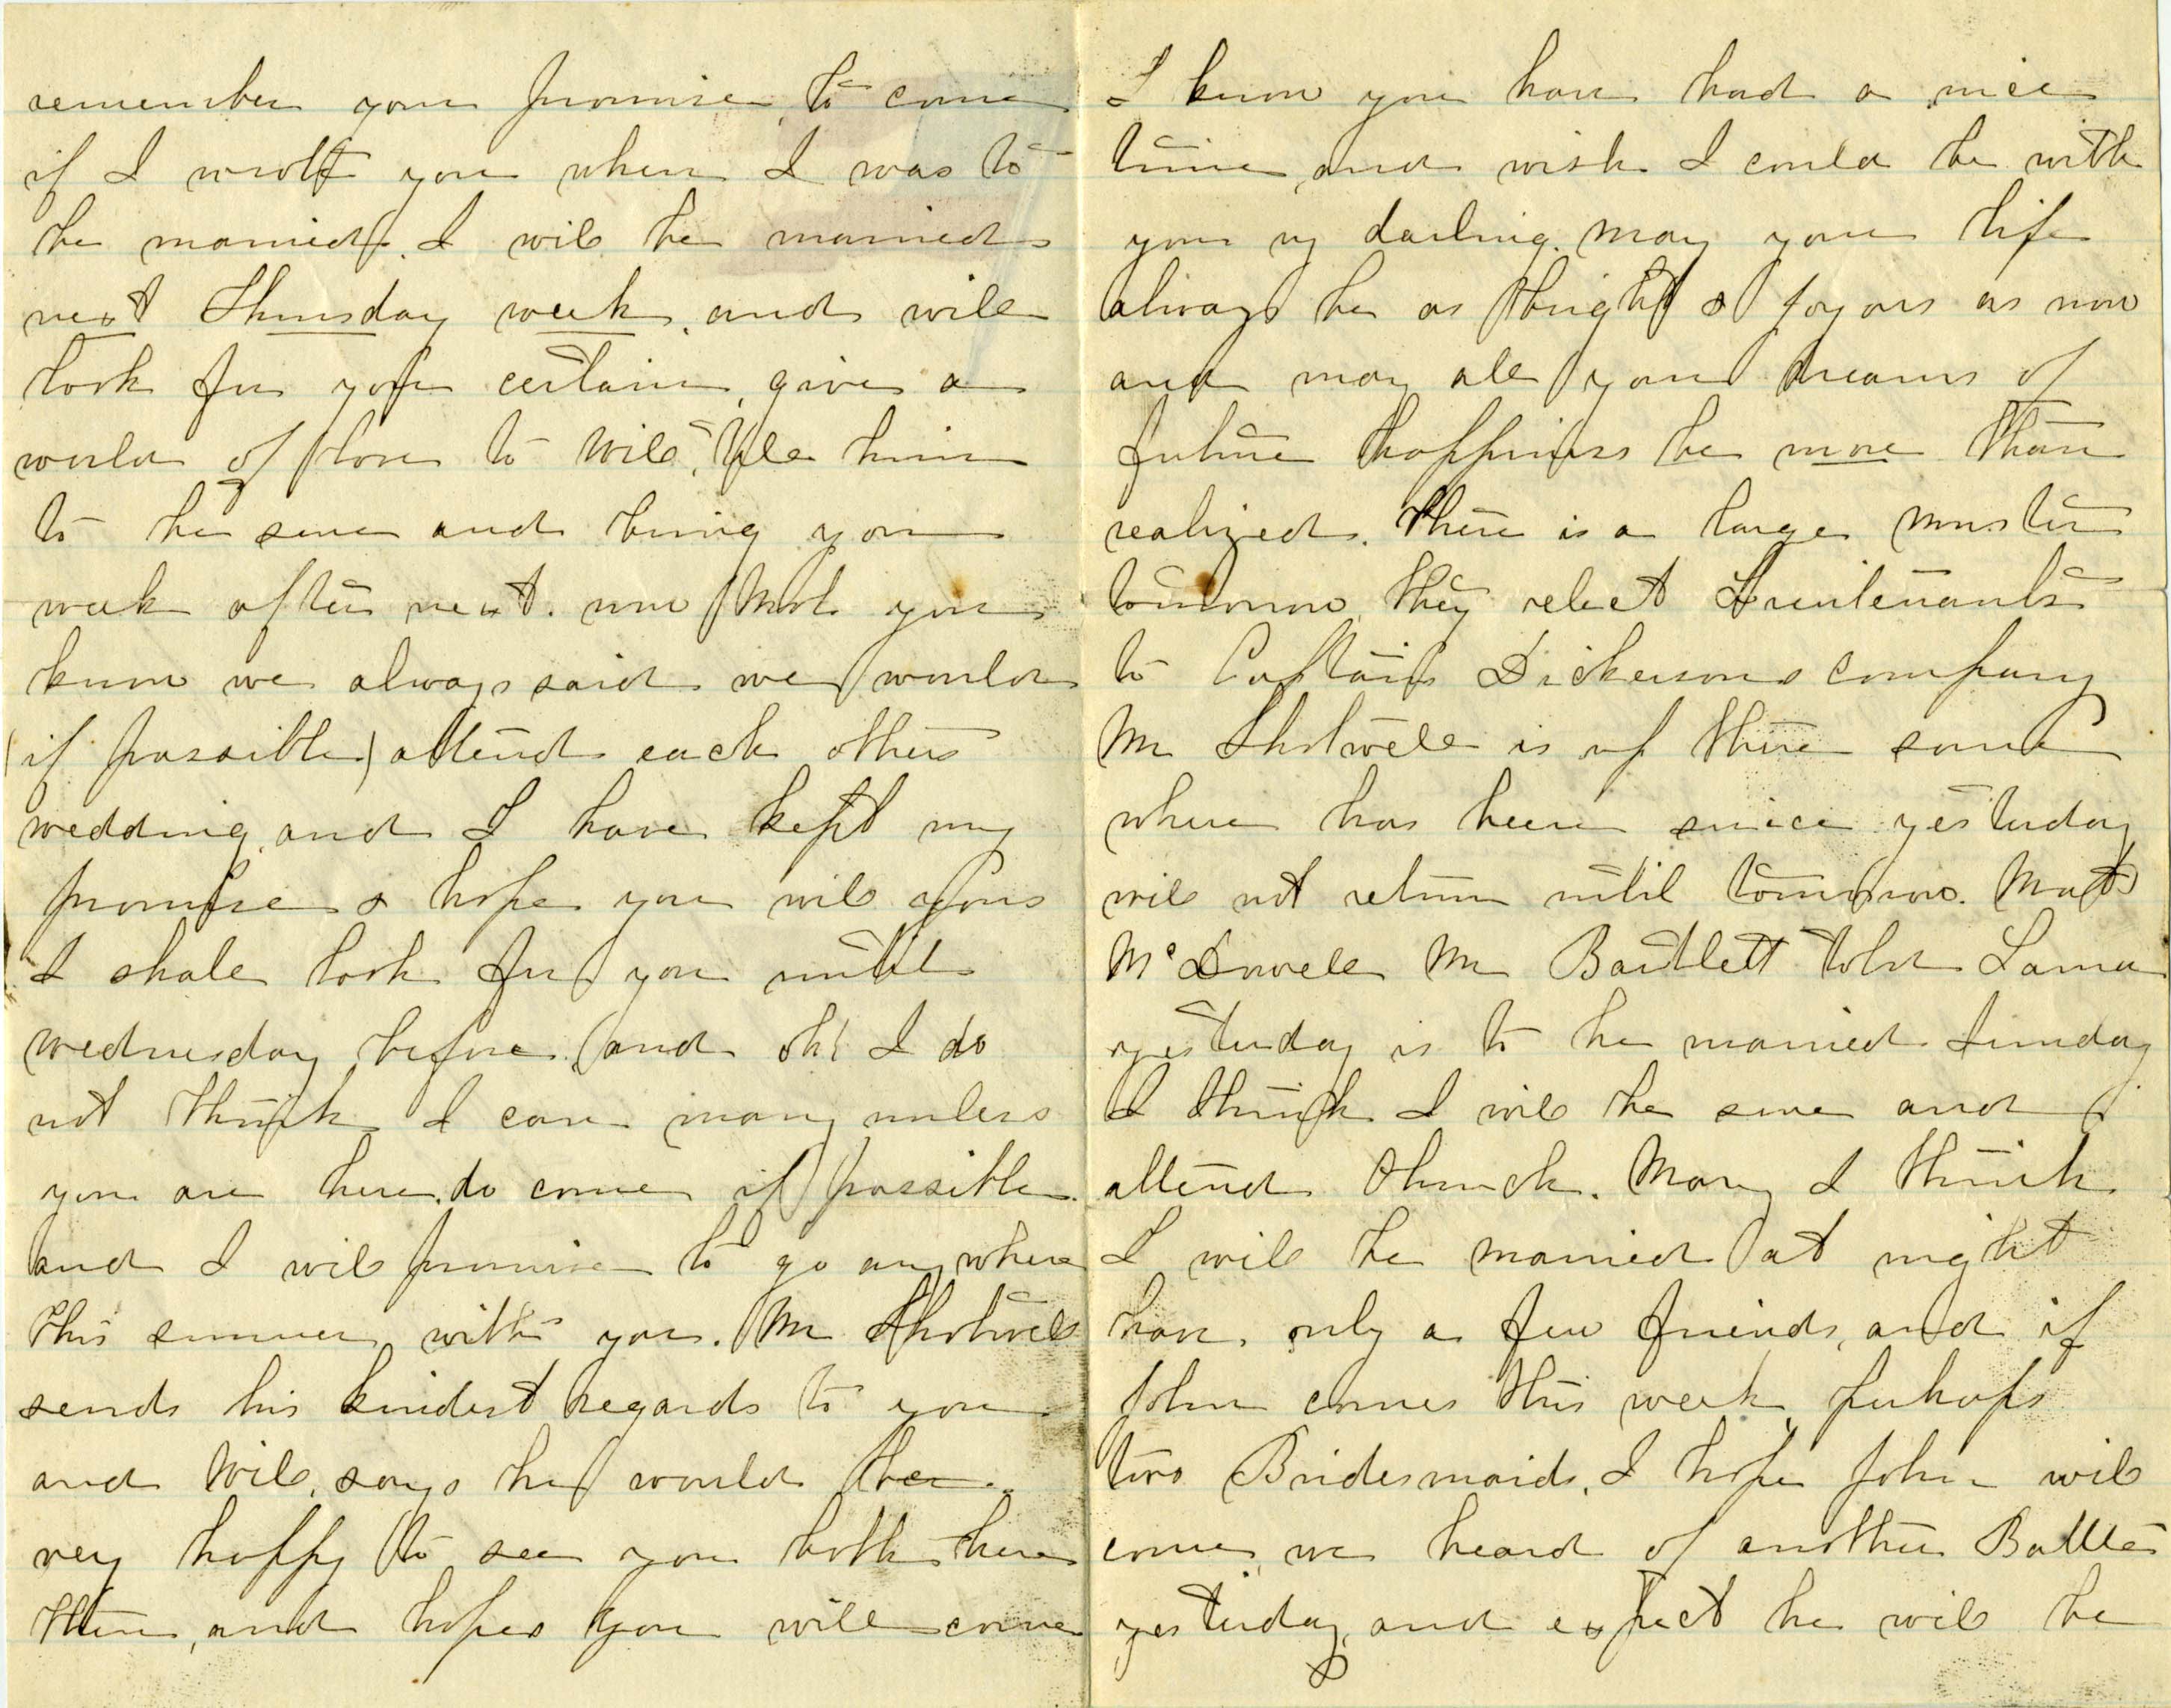 remember your promise, to come
if I wrote you when I was to
be married. I will be married
next Thursday week, and will
look for you certain, give a
world of love to Will, tell him
to be sure and bring you
week after next. now Moll you
know we always said we would
(if possible) attend each others
wedding, and I have kept my
promise & hope you will yours
I shall look for you until
wednesday before, and oh! I do
not think I can marry unless
you are here, do come if possible.
and I will promise to go any where
this summer with you. Mr Shotwell
sends his kindest regards to you
and Will, says he would be
very happy to see you both here
then, and hopes you will come
I know you have had a nice
time, and wish I could be with
you my darling. may your life
always be as bright & joyous as now
and may all your dreams of
future happiness be more than
realized. There is a large muster
tomorrow, they elect Lieutenants
to Captain Dickersons company
Mr Shotwell is up there some
where has been since yesterday
will not return until tomorrow. Matt
McDowell Mr Bartlett told Laura
yesterday is to be married Sunday
I think I will be sure and
attend Church. Mary I think
I will be married at night
have only a few friends, and if
John comes this week, perhaps
two Bridesmaids, I hope John will
come, we heard of another Battle
yesterday, and expect he will be